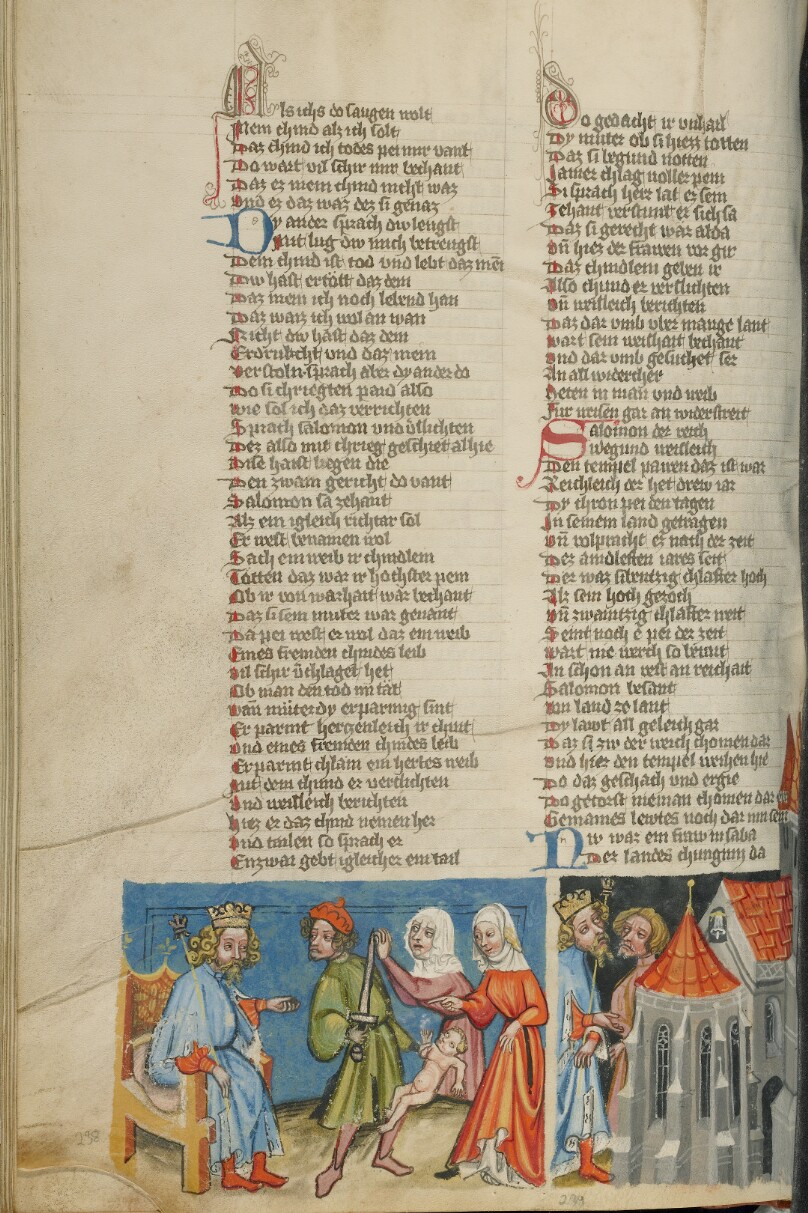 Als ichs do saugen wolt
Mein chind als ich solt
Daz chind ich todes pei mir vant
Do wart vil schir mir bechant
Daz ez mein chind nicht waz
Und ez daz waz dez si genaz
Dy ander sprach dw leugst
Mit lug dw mich betreugst
Dein chind ist tod vnd lebt daz mei
Dw hast ertött daz dein
Daz mein ich noch lebend han
Daz waiz ich wol an wan
Nicht dw hast daz dein
Erdrukcht vnd daz mein
Verstoln sprach aber dy ander do
Do si chriegten paid also
wie sol ich daz verrichten
Sprach salomon vnd slichten
Dez also mit chrieg geschiet alhie
Dise haist liegen die
Den zwain gericht do vant
Salomon sa zehant
Als ein igleich richtar sol
Er west benamen wol
Sach ein weib ir chindlein
Tötten daz war ir hochster pein
Ob ir von warhait war bechant
Daz si sein muter war genant
Da pei west er wol daz ein weib
Eines fremden chindes leib
vil schir v̄chlaget het
Ob man den tod im tät
wan müter dy erparmug sint
Er parmt hertzenleich ir chint
vnd eines fremden chindes leib
Erparmt chlain ein hertes weib
Mit dem chund er verslichten
Und weisleich berichten
hiez er daz chind nemen her
Und tailen so sprach er
Enzwai gebt igleicher ein tail
Do gedacht ir vnhail
Dy muter ob si hiezz totten
Daz si begund notten
Jamer chlag voller pein
Si sprach herr lat ez sein
Zehant verstunt er sich sa
Daz si gerecht war alda
Vn̄ hiez der frawen vor gir
Daz chindlein geben ir
Also chund er verslichten
Vn̄ weisleich berichten
Daz dar vmb vber manige lant
wart sein weishait bechant
vnd dar vmb gesuchet ser
An all widercher
Heten in man vnd weib
Fur weisen gar an widerstreit
Salomon der reich
Wegund weisleich
Den tempel pawen daz ist war
Reichleich er het drew iar
Dy chron pei den tagen
In seinem land getragen
Vn̄ volpracht er nach der zeit
Dez aindleften iares seit
Der waz sibentzig chlaffter hoch
Als sein hoch gezoch
Vn̄ zwaintzig chlaffter weit
Seint noch e pei der zeit
wart nie werch so bewnt
An schon an vest an reichait
Salomon besant
von land ze lant
Dy lawt all geleich gar
Daz si zw der weich chomen dar
vnd hiez den tempel weihen hie
Do daz geschach vnd ergie
Do getorst nieman chomen dar ein
Gemaines lewtes noch dar inn sein
Nw war ein fraw in saba
Der landes chunginn da
298
299